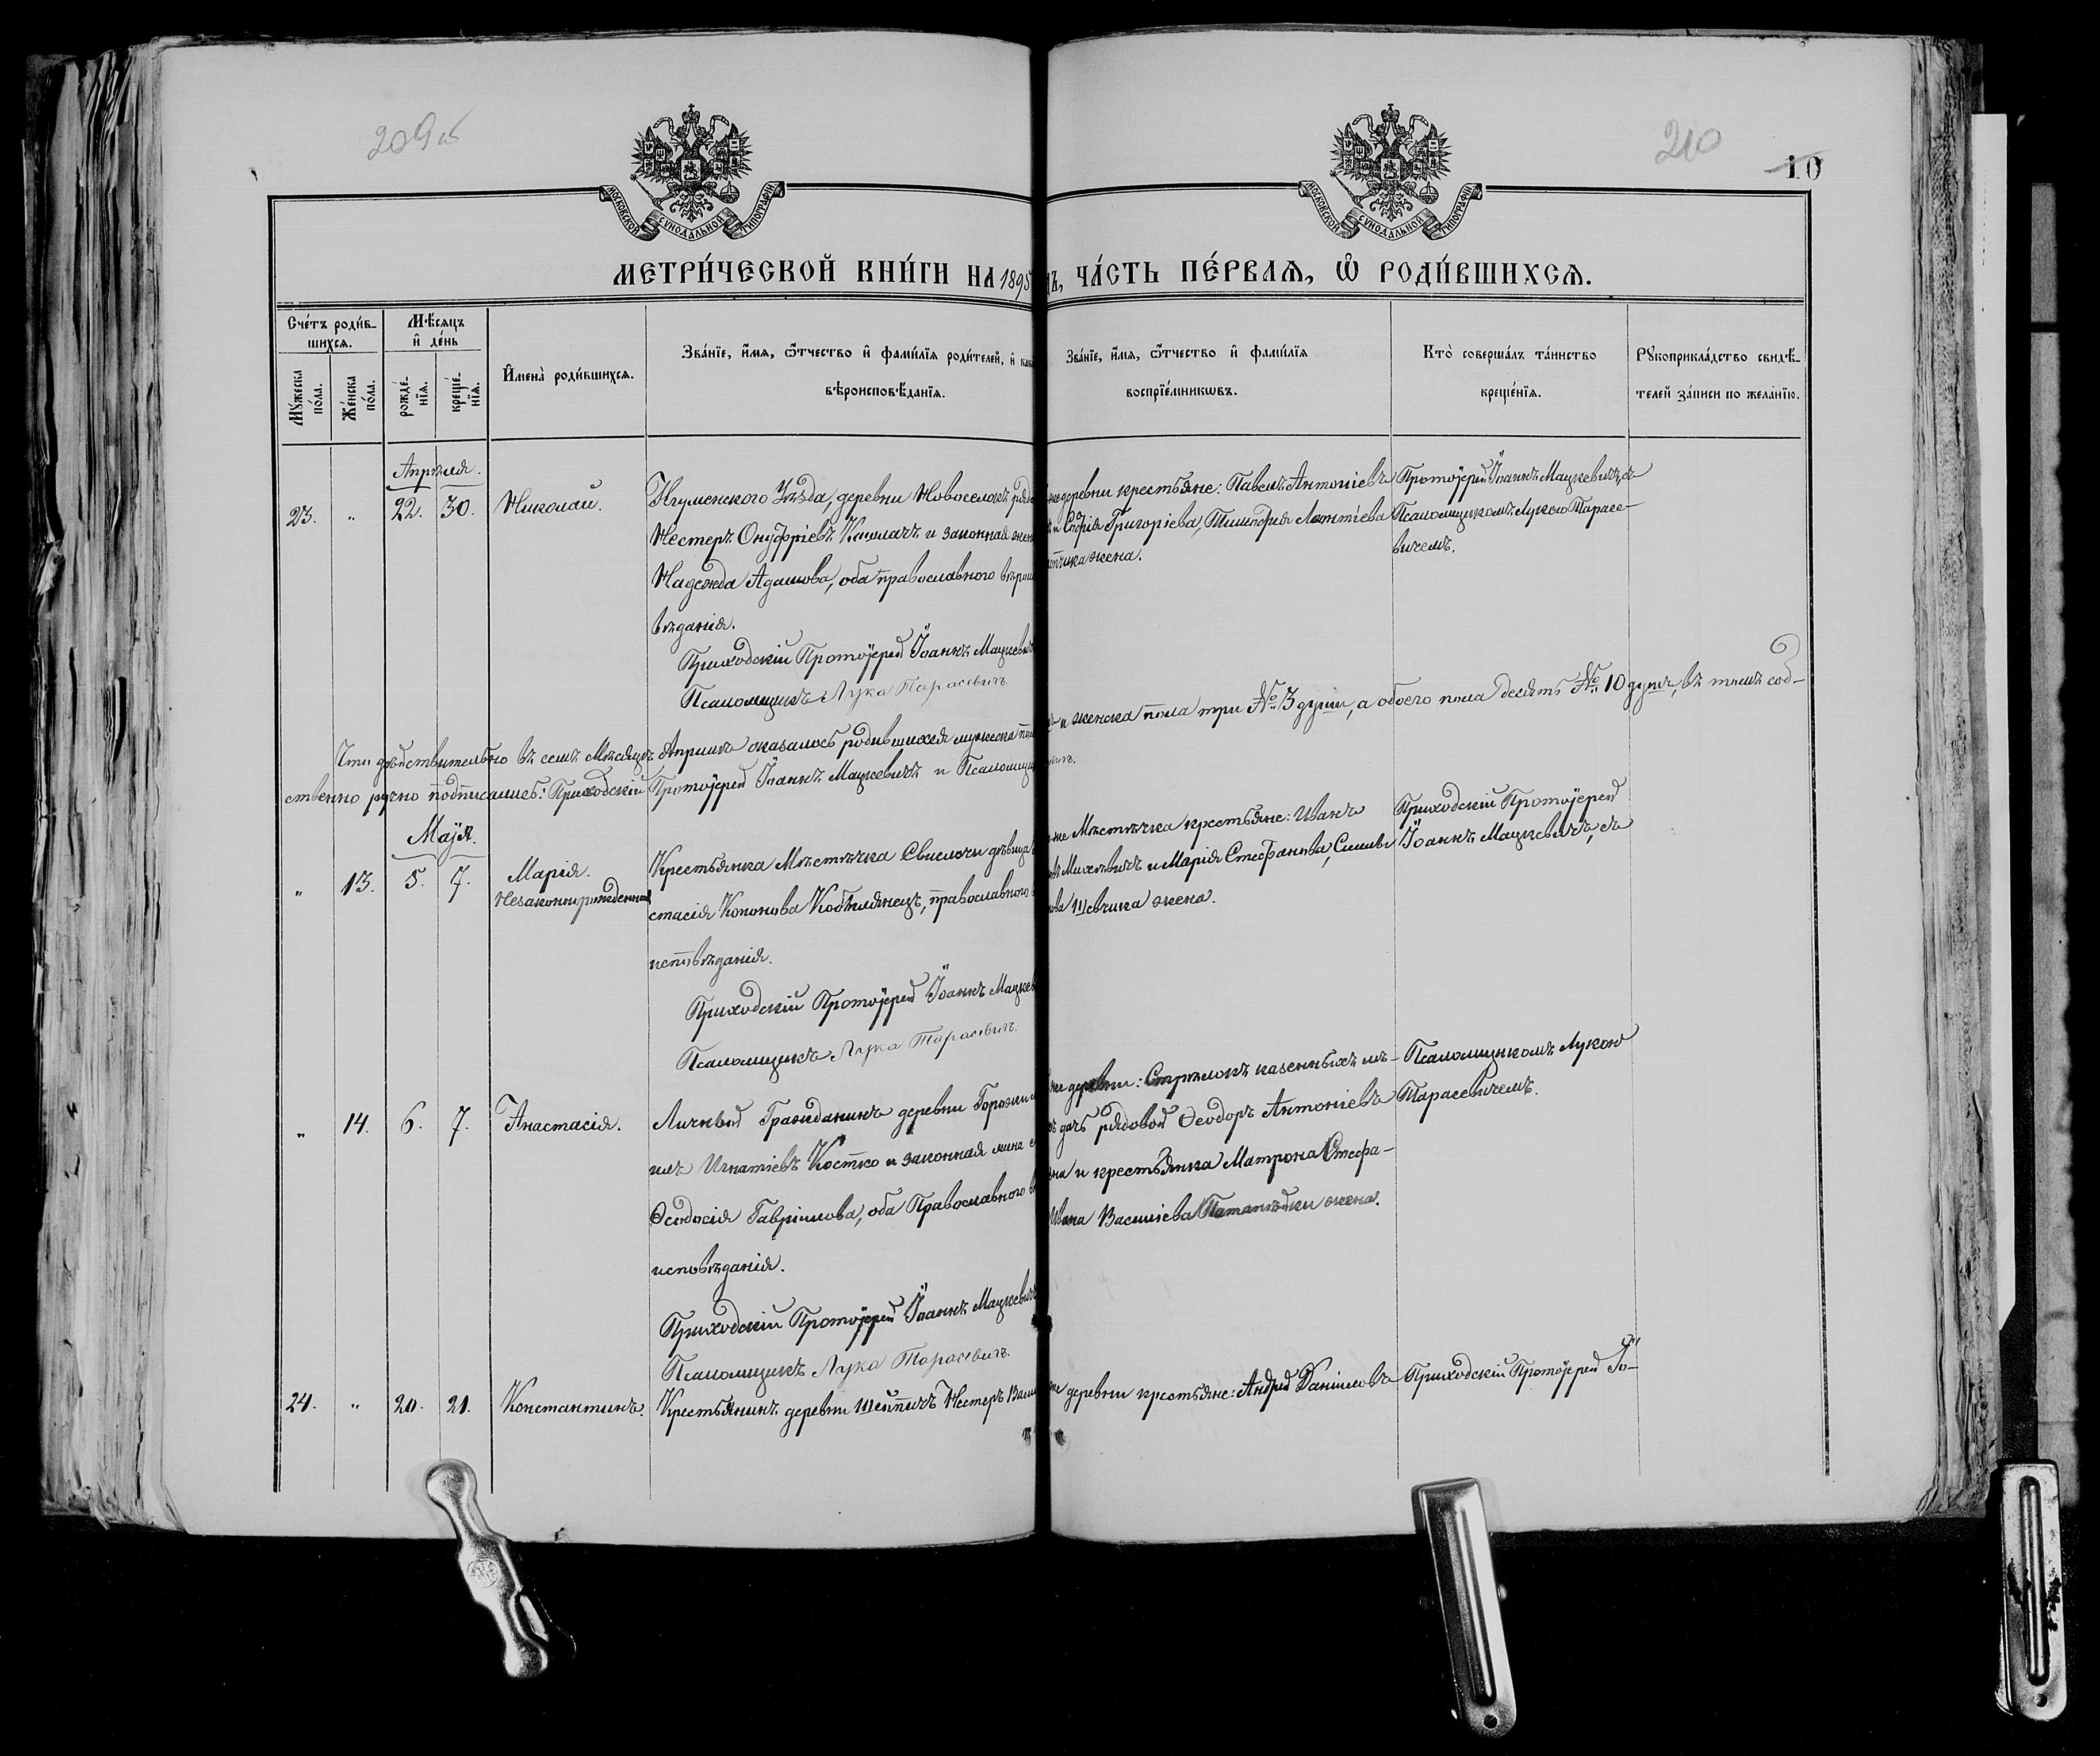 209б
210
10
МОСКОВСКОЙ СѴНОДАЛЬНОЙ ТИПОГРАФІИ
МОСКОВСКОЙ СѴНОДАЛЬНОЙ ТИПОГРАФІИ
МЕТРИ́ЧЕСКОЙ КНИ́ГИ НА 1895
ЧА́СТЬ ПЕ́РВАѦ, Ѽ РОДИ́ВШИХСѦ.
Сче́тъ роди́в-
шихсѧ.
Мѣ́сѧцъ
и҆ де́нь
Мꙋ́жеска по́ла.
Же́нска по́ла.
рожде́-нїѧ.
креще́-нїѧ.
И҆мена̀ роди́вшихсѧ.
Зва́нїе, и҆́мѧ, ѻ҆́тчество и҆ фами́лїѧ роди́телей, и҆
вѣроисповѣ́данїѧ.
Зва́нїе, и҆́мѧ, ѻ҆́тчество и҆ фами́лїѧ
воспрїе́мникѡвъ.
Кто̀ соверша́лъ та́инство
креще́нїѧ.
Рꙋкоприкла́дство свидѣ́-
телей за́писи по жела́нїю.
Апрѣля.
23. " 22. 30. Николай.
Игуменскаго Уѣзда, деревни Новоселокъ
Нестеръ Онуфріевъ и законная
Надежда Адамова, оба православнаго
вѣданія.
Приходскій Протоіерей Іоаннъ Мацкевичъ
Псаломщикъ Лука Тарасевичъ.
деревни крестьяне: Павелъ Антоніевъ
и Софія Григоріева, Тимофея Леонтіева
жена.
Протоіерей Іоаннъ Мацкевичъ, съ
Псаломщикомъ Лукою Тарасе-
вичемъ.
Что дѣйствительно въ семъ Мѣсяцѣ Апрѣлѣ оказалось родившихся мужеска
и женска пола три № 3 души, а обоего пола десять № 10 душъ, въ томъ соб-
ственно ручно подписались: Приходскій Протоіерей Іоаннъ Мацкевичъ и
Маія.
" 13. 5. 7. Марія.
Незаконнорожденная
Крестьянка Мѣстечка Свислочи дѣвица
стасія Кононова Кобылянецъ, православнаго
исповѣданія.
Приходскій Протоіерей Іоаннъ
Псаломщикъ Лука Тарасевичъ.
Мѣстечка крестьяне: Иванъ
Михелевичъ и Марія Стефанова,
Шевчика жена.
Приходскій Протоіерей
Іоаннъ Мацкевичъ, съ
" 14. 6. 7. Анастасія.
Личный Гражданинъ деревни
Игнатіевъ Костко и законная жена
Ѳеодосія Гавріилова, оба Православнаго
исповѣданія.
Приходскій Протоіерей Іоаннъ Мацкевичъ
Псаломщикъ Лука Тарасевичъ.
деревни: Стрѣлокъ казенныхъ лѣ-
дачъ рядовой Ѳеодоръ Антоніевъ
и крестьянка Матрона Стефа-
Ивана Василіева жена.
Псаломщикомъ Лукою
Тарасевичемъ.
24. " 20. 21. Константинъ.
Крестьянинъ деревни Нестеръ
деревни крестьяне: Андрей Даніиловъ
Приходскій Протоіерей Іо-